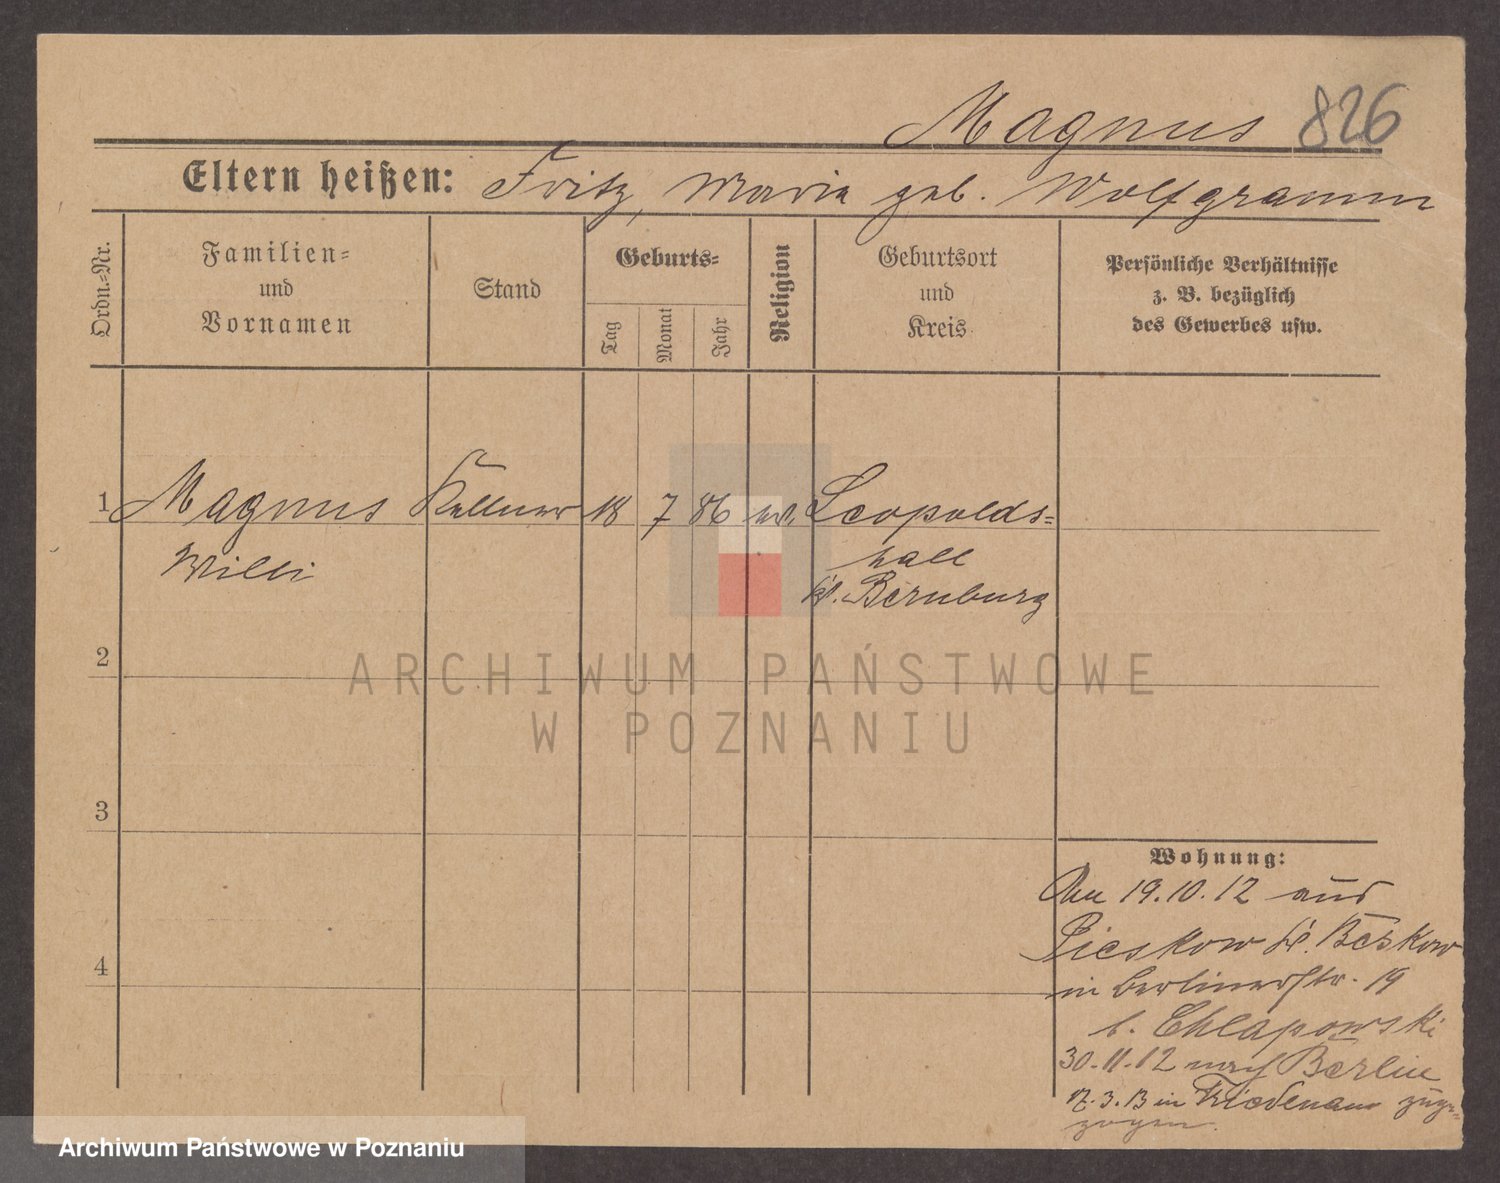 Magnus 826
Eltern heißen: Fritz, Maria geb. Wolfgramm
Ordn.-Nr.
Familien-
und
Vornamen
Stand
Geburts-
Tag
Monat
Jahr
Religion
Geburtsort
und
Kreis
Persönliche Verhältnisse
z. B. bezüglich
des Gewerbes usw.
1 Magnus Kellner 18 7 86 ev. Leopolds-
Willi hall
Kr. Bernburg
2
3
4
Wohnung:
Am 19.10.12 aus
Pieskow Kr. Beskow
in Berlinerstr. 19
b. Chlapowski
30.11.12 nach Berlin
3.13 in Friedenau zuge-
zogen.
ARCHIWUM PAŃSTWOWE
W POZNANIU
Archiwum Państwowe w Poznaniu